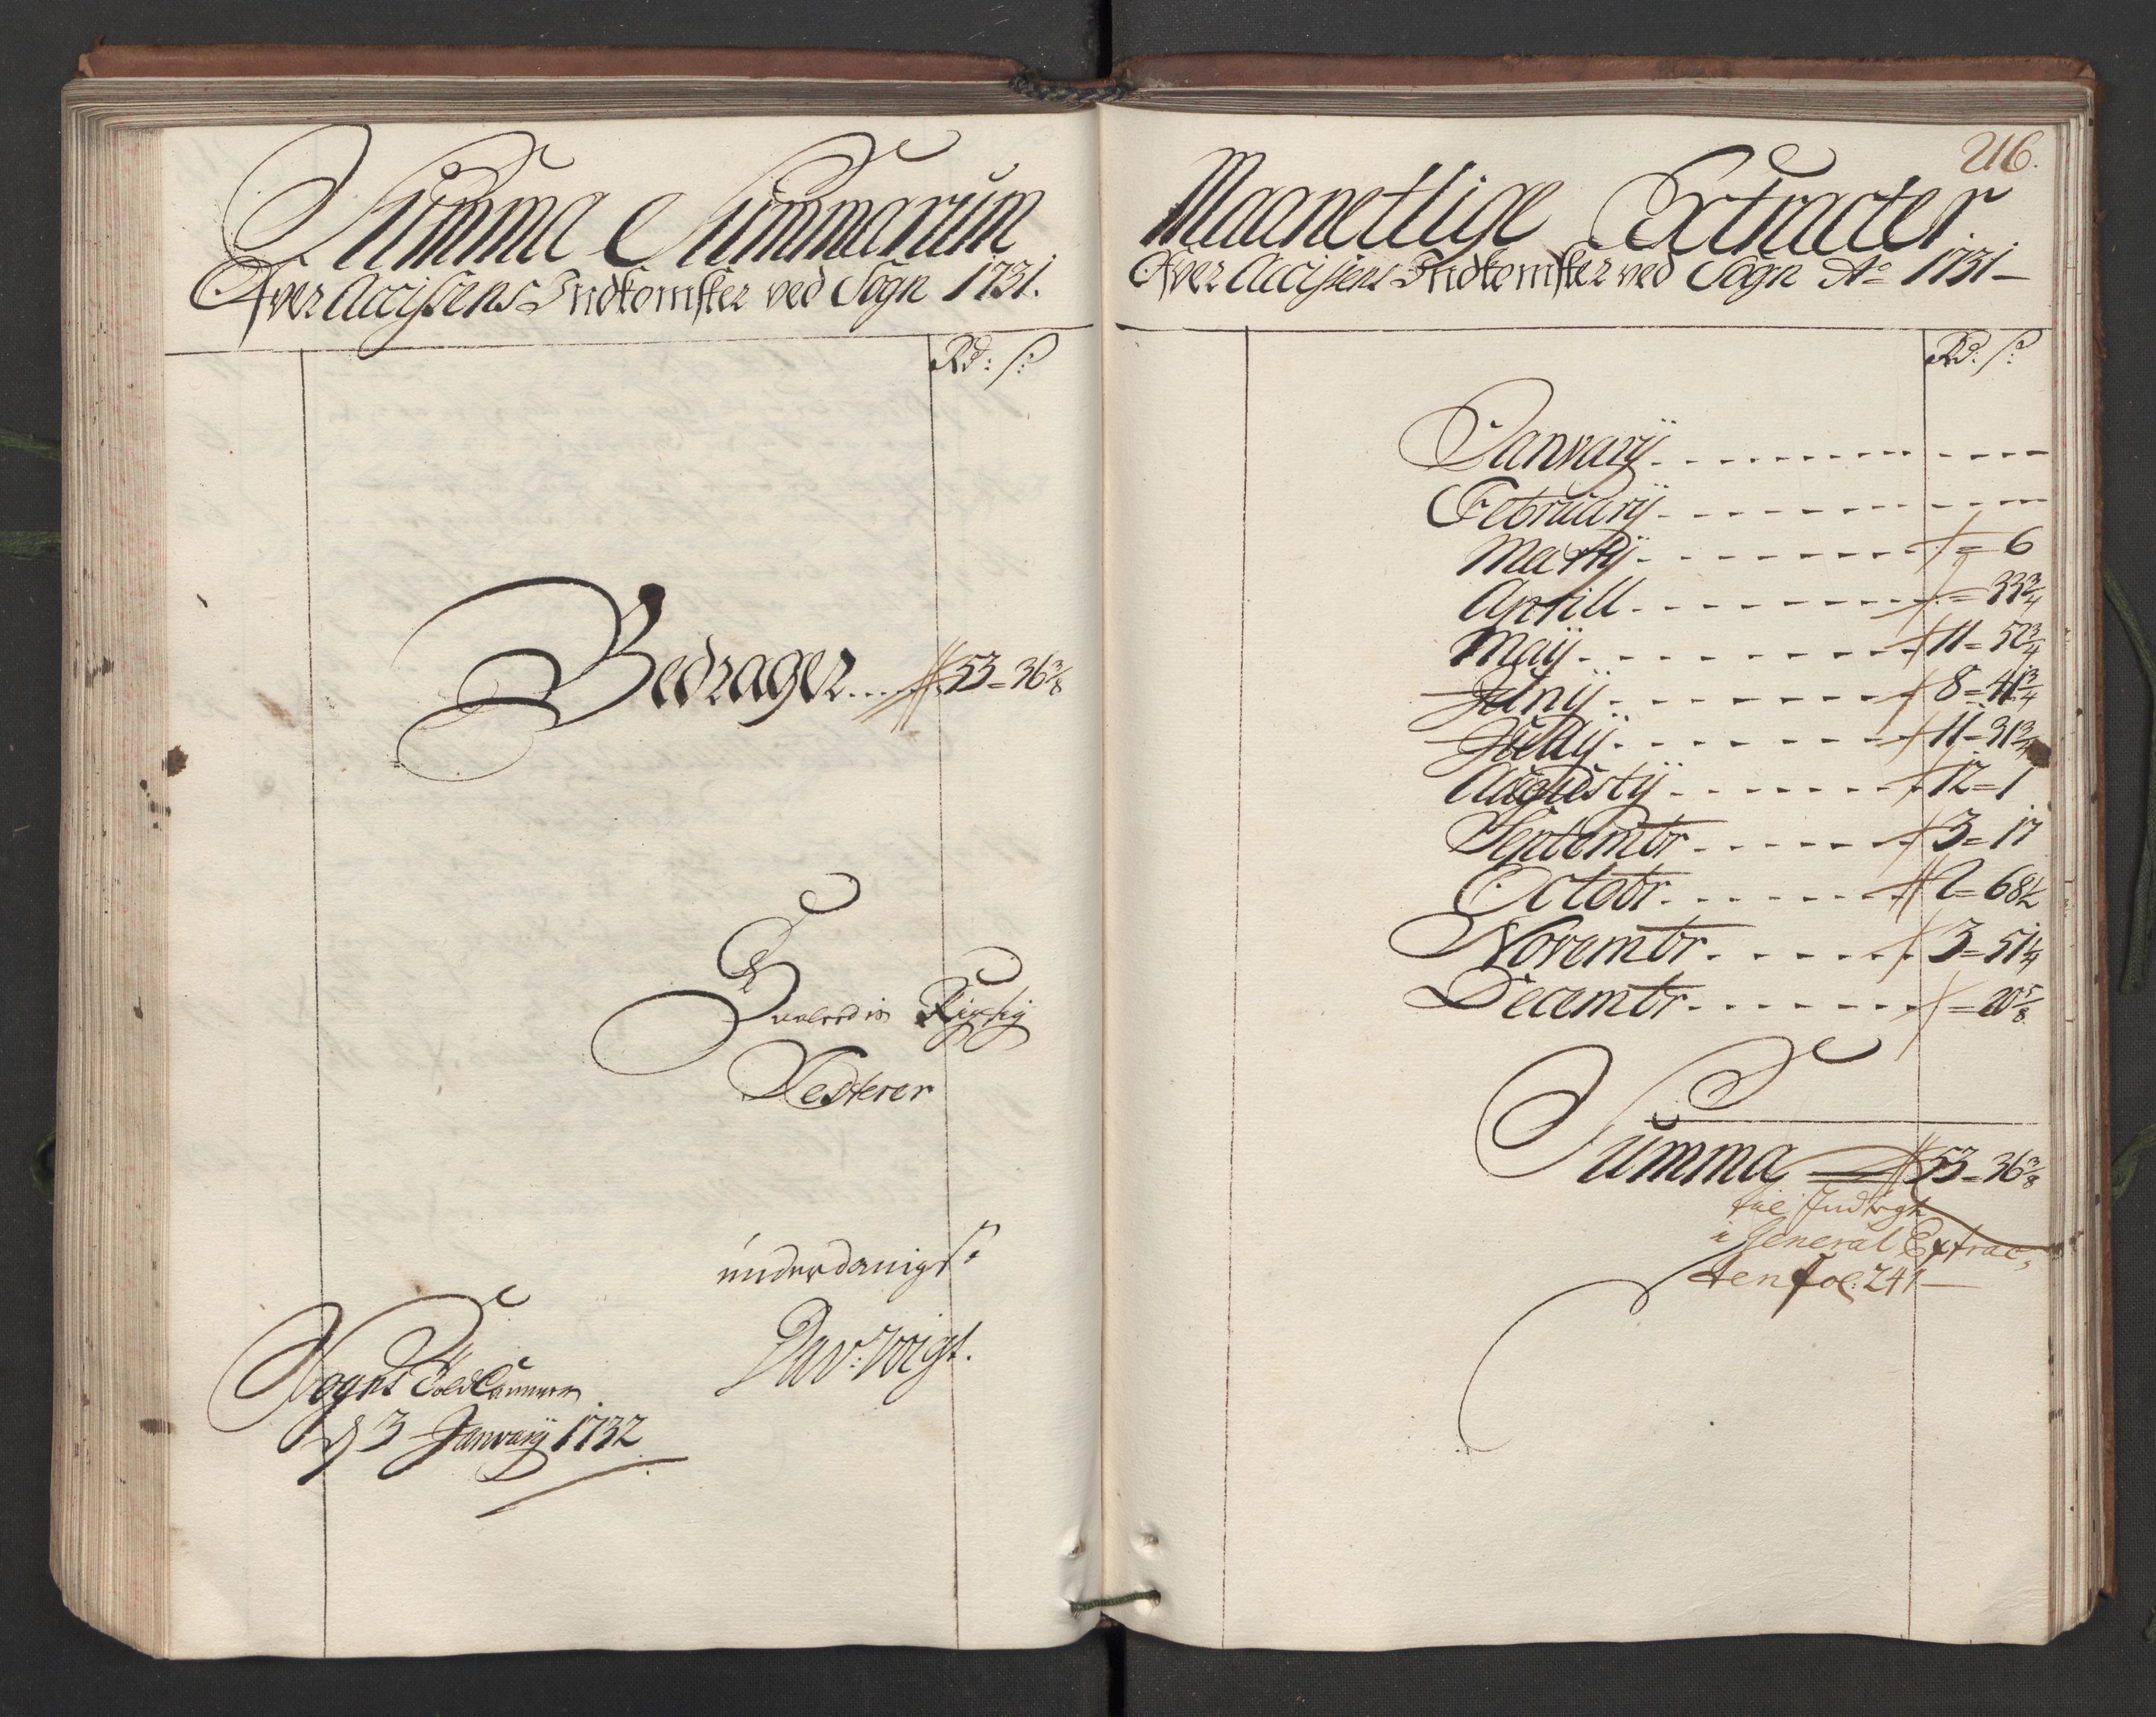 Summa Summarum
Over Accissens Indkomster ved Sogn 1731.
Rd: s:
Bedrager... 53 = 36 3/8
Saaledis Rigtig
Testerer
underdanigst
Dav: Voigt.
Sogns Told Cammer
d 3 January 1732
216.
Maanetlige Extracter
Over Accissens Indkomster ved Sogn Ao 1731 –
Rd: s:
Januarij - - - - - - - - - - - - -
Februarij - - - - - - - - - - - -
Martij - - - - - - - = 6
Aprill - - - - - - - - = 33 3/4
Maij - - - - - - - - 11 = 52 3/4
Junij - - - - - - - 8 = 41 3/4
Julij - - - - - - - 11 = 31 3/4
Augustij - - - - - - 12 = 1
Septembr - - - - - - 3 = 17
Octobr - - - - - - 2 = 68 1/2
Novembr - - - - - - 3 = 51 1/4
Decembr - - - - - - - = 20 5/8
Summa 53 = 36 3/8
til Indtegt
i General Extrac,
ten fol: 241 –